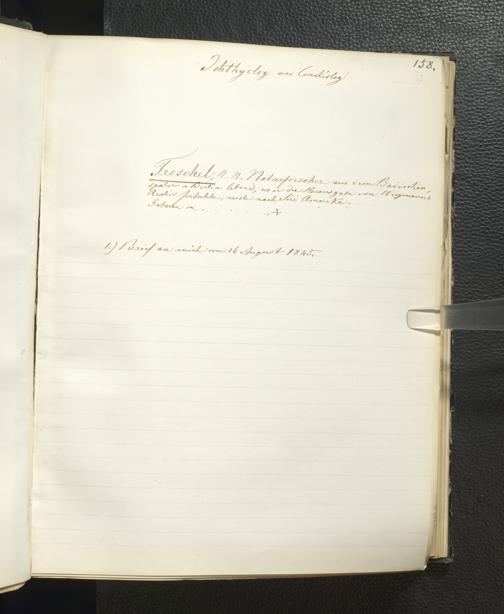 158.
Ichthyolog und Conchiolog
Treschel, N. N. Naturforscher aus dem Badischen,
später in Berlin lebend, wo er die Herausgabe von Wiegmanns
Archiv fortsetzte, reiste nach Amerika.
Geboren
1.) Brief an mich vom 16 August 1845.